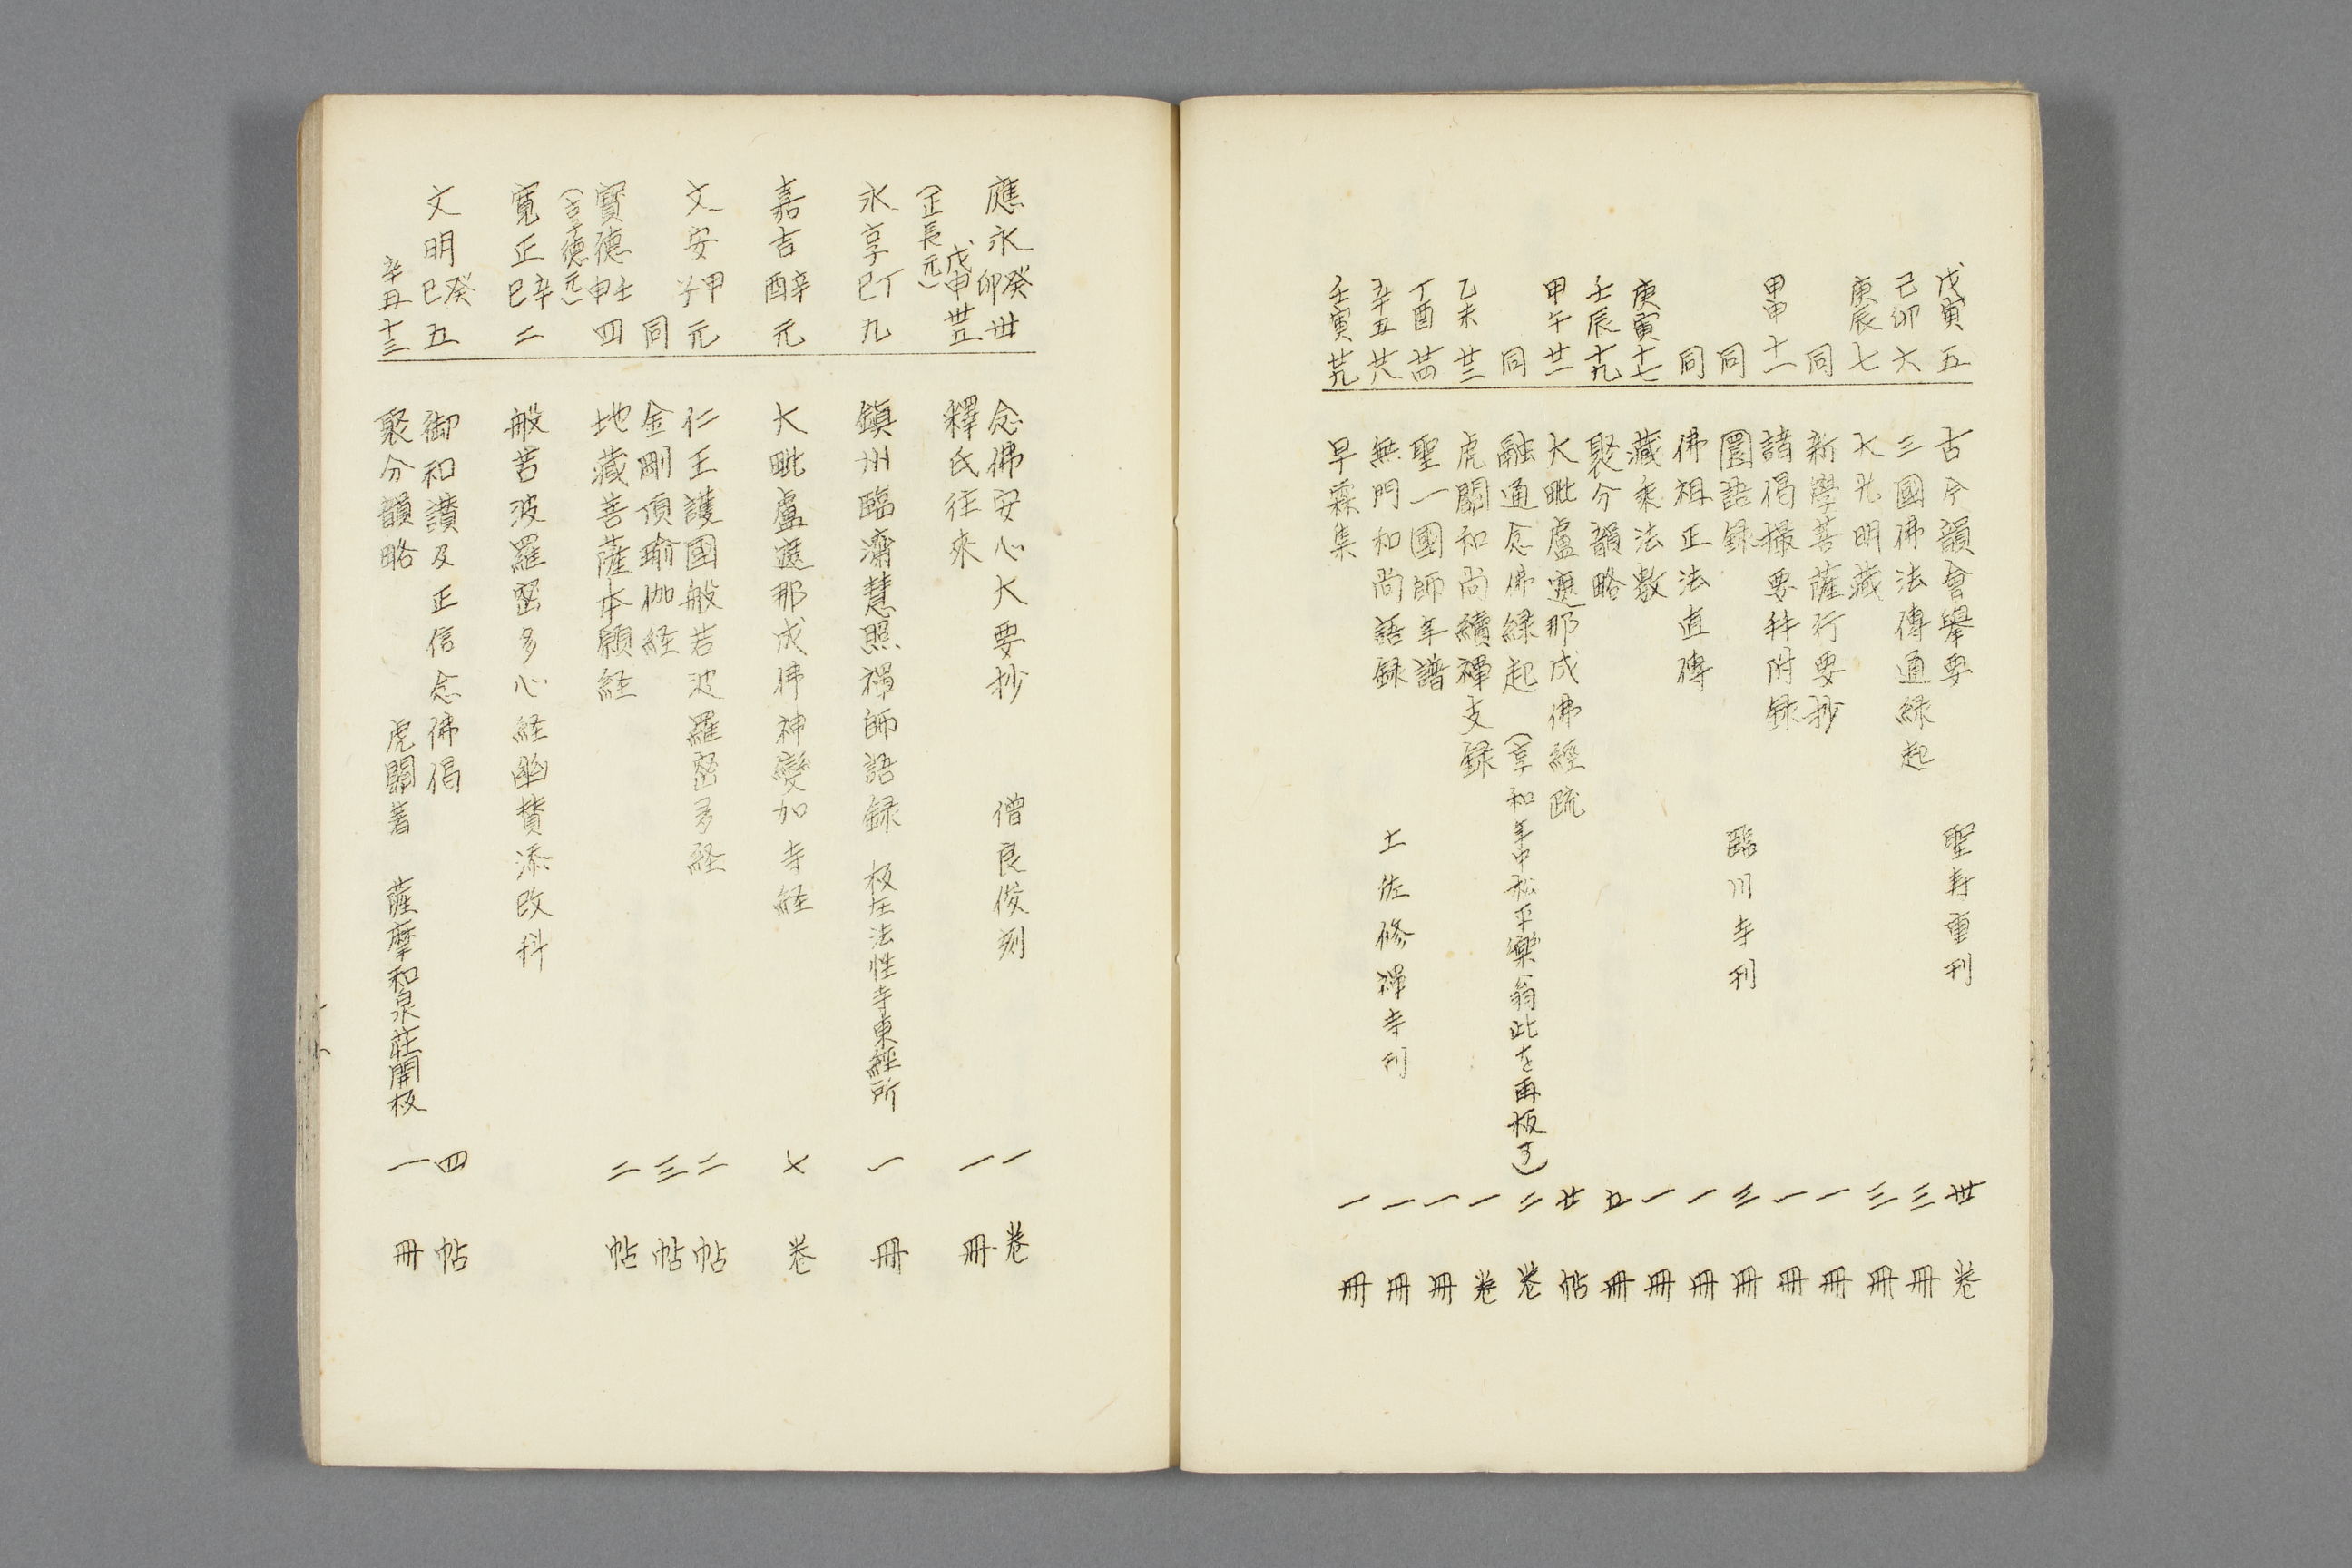 戊寅 五 古今韻會擧要 聖寿重刊 卅 卷
己卯 六 三國佛法傳通緣起 三 冊
庚辰 七 大光明藏 三 冊
同 新學菩薩行要抄 一 冊
甲申 十一 諸偈撮要科附録 一 冊
同 圜語録 臨川寺刊 三 冊
同 佛祖正法直傳 一 冊
庚寅 十七 藏乘法數 一 冊
壬辰 十九 聚分韻略 五 冊
甲午 廿一 大毗盧遮那成佛經疏 廿 帖
同 融通念佛緣起 (享和年中松平樂翁此を再板す) 二 卷
乙未 廿二 虎關和尚續禪支録 一 卷
丁酉 廿四 聖一國師年譜 一 冊
辛丑 廿八 無門和尚語録 土佐修禪寺刊 一 冊
壬寅 廿九 早霖集 一 冊
應永 癸卯 卅 念佛安心大要抄 僧良俊刻 一 卷
戊申 卅五 釋氏往來 一 冊
(正長元)
永享 丁巳 九 鎭州臨濟慧照禪師語録 板在法性寺東經所 一 冊
嘉吉 辛酉 元 大毗盧遮那成佛神變加寺経 七 卷
文安 甲子 元 仁王護國般若波羅密多経 二 帖
同 金剛頂瑜伽経 三 帖
寶德 壬申 四 地藏菩薩本願経 二 帖
(享德元)
寛正 辛巳 二 般若波羅密多心経幽賛添改科
文明 癸巳 五 御和讃及正信念佛偈 四 帖
辛丑 十三 聚分韻略 虎關著 薩摩和泉莊開板 一 冊